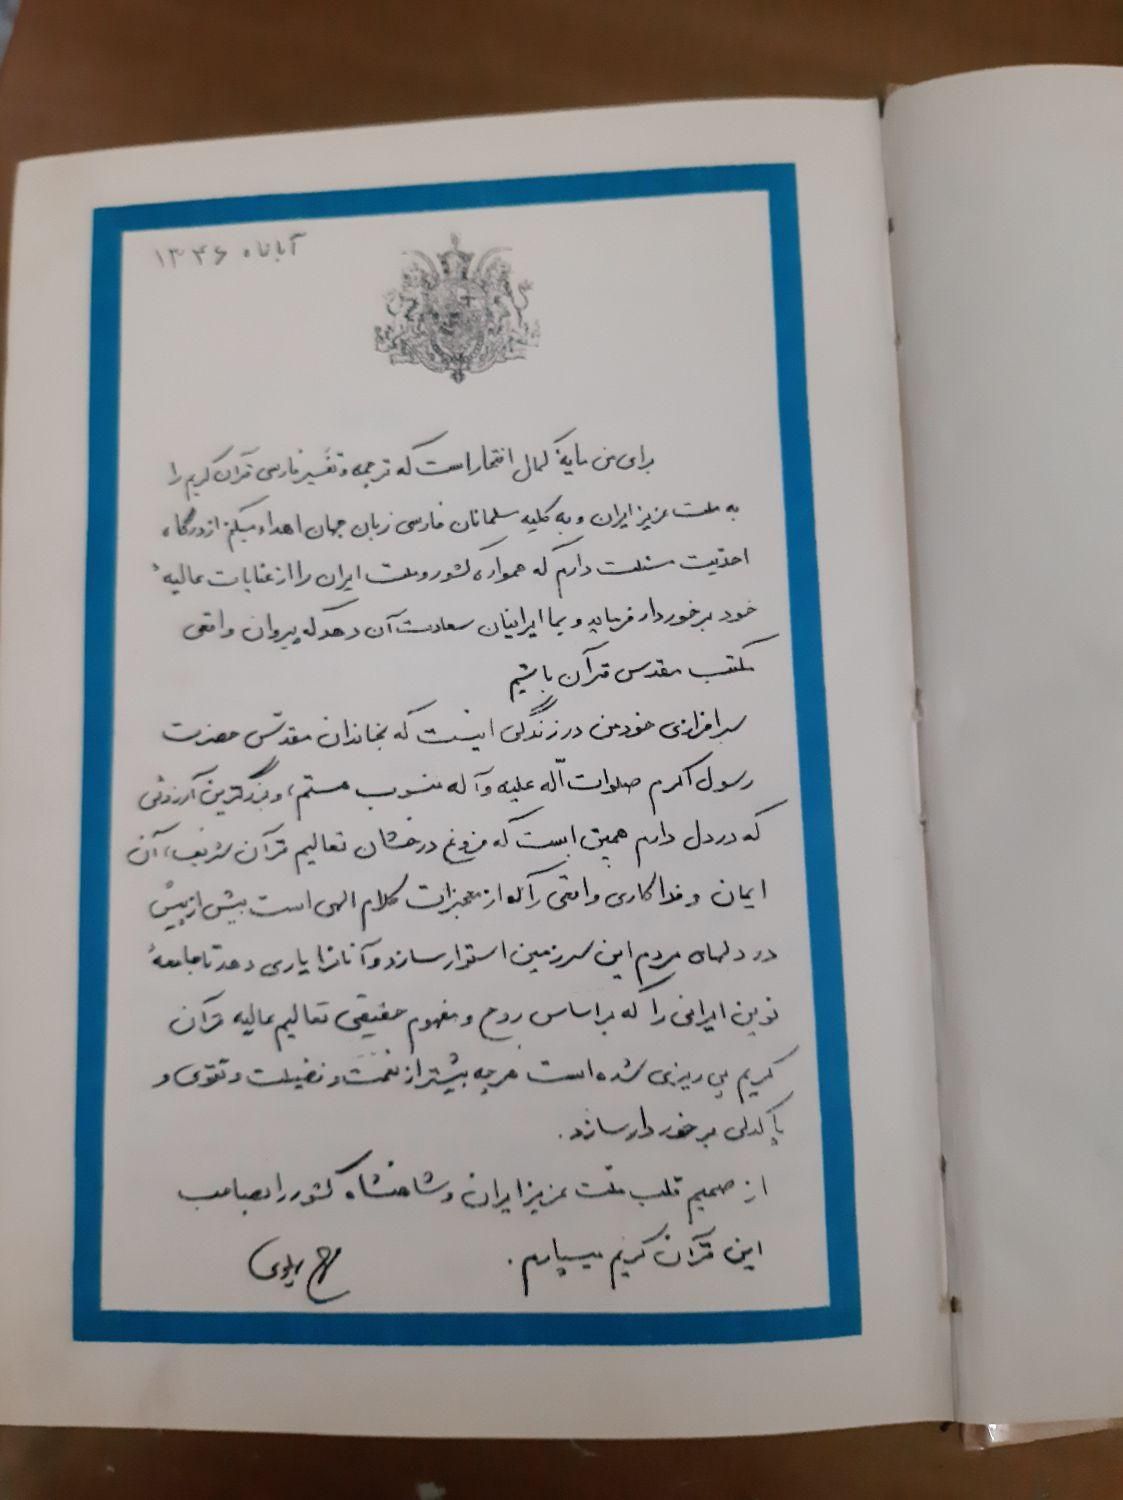 آبانماه ۱۳۴۶
برای من مایهٔ کمال افتخار است که ترجمه و تفسیر فارسی قرآن کریم را
به ملت عزیز ایران و به کلیه مسلمانان فارسی زبان جهان اهداء میکنم از درگاه
احدّیت مسئلت دارم که همواره کشور و ملت ایران را از عنایات عالیهٔ
خود برخوردار فرماید و بما ایرانیان سعادت آن دهد که پیروان واقعی
مکتب مقدس قرآن باشیم
سرافرازی خود من در زندگی اینست که بخاندان مقدّس حضرت
رسول اکرم صلوات الّله علیه و آله منسوب هستم، و بزرگترین آرزوئی
که در دل دارم همین است که فروغ درخشان تعالیم قرآن شریف، آن
ایمان و فداکاری واقعی را که از معجزات کلام الهی است بیش از پیش
در دلهای مردم این سرزمین استوار سازد و آنانرا یاری دهد تا جامعهٔ
نوین ایرانی را که بر اساس روح و مفهوم حقیقی تعالیم عالیه قرآن
کریم پی ریزی شده است هر چه بیشتر از نعمت و فضیلت و تقوی و
پاکدلی برخوردار سازد.
از صمیم قلب ملت عزیز ایران و شاهنشاه کشور را بصاحب
این قرآن کریم میسپارم.
فرح پهلوی